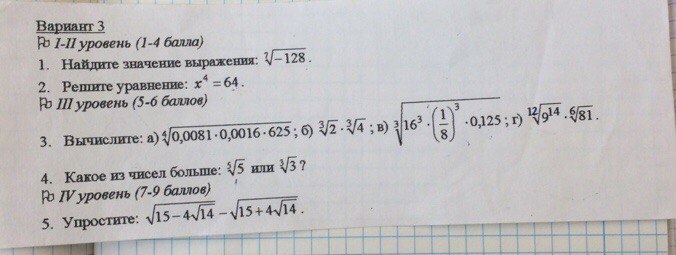 Вариант 3
I-II уровень (1-4 балла)
1. Найдите значение выражения: ⁷√(−128) .
2. Решите уравнение: x⁴ = 64 .
III уровень (5-6 баллов)
3. Вычислите: а) ⁴√(0,0081·0,0016·625) ; б) ³√2 · ³√4 ; в) ³√(16³·(1/8)³·0,125) ; г) ¹²√(9¹⁴) · ⁶√81 .
4. Какое из чисел больше: ⁵√5 или ³√3 ?
IV уровень (7-9 баллов)
5. Упростите: √(15−4√14) − √(15+4√14) .